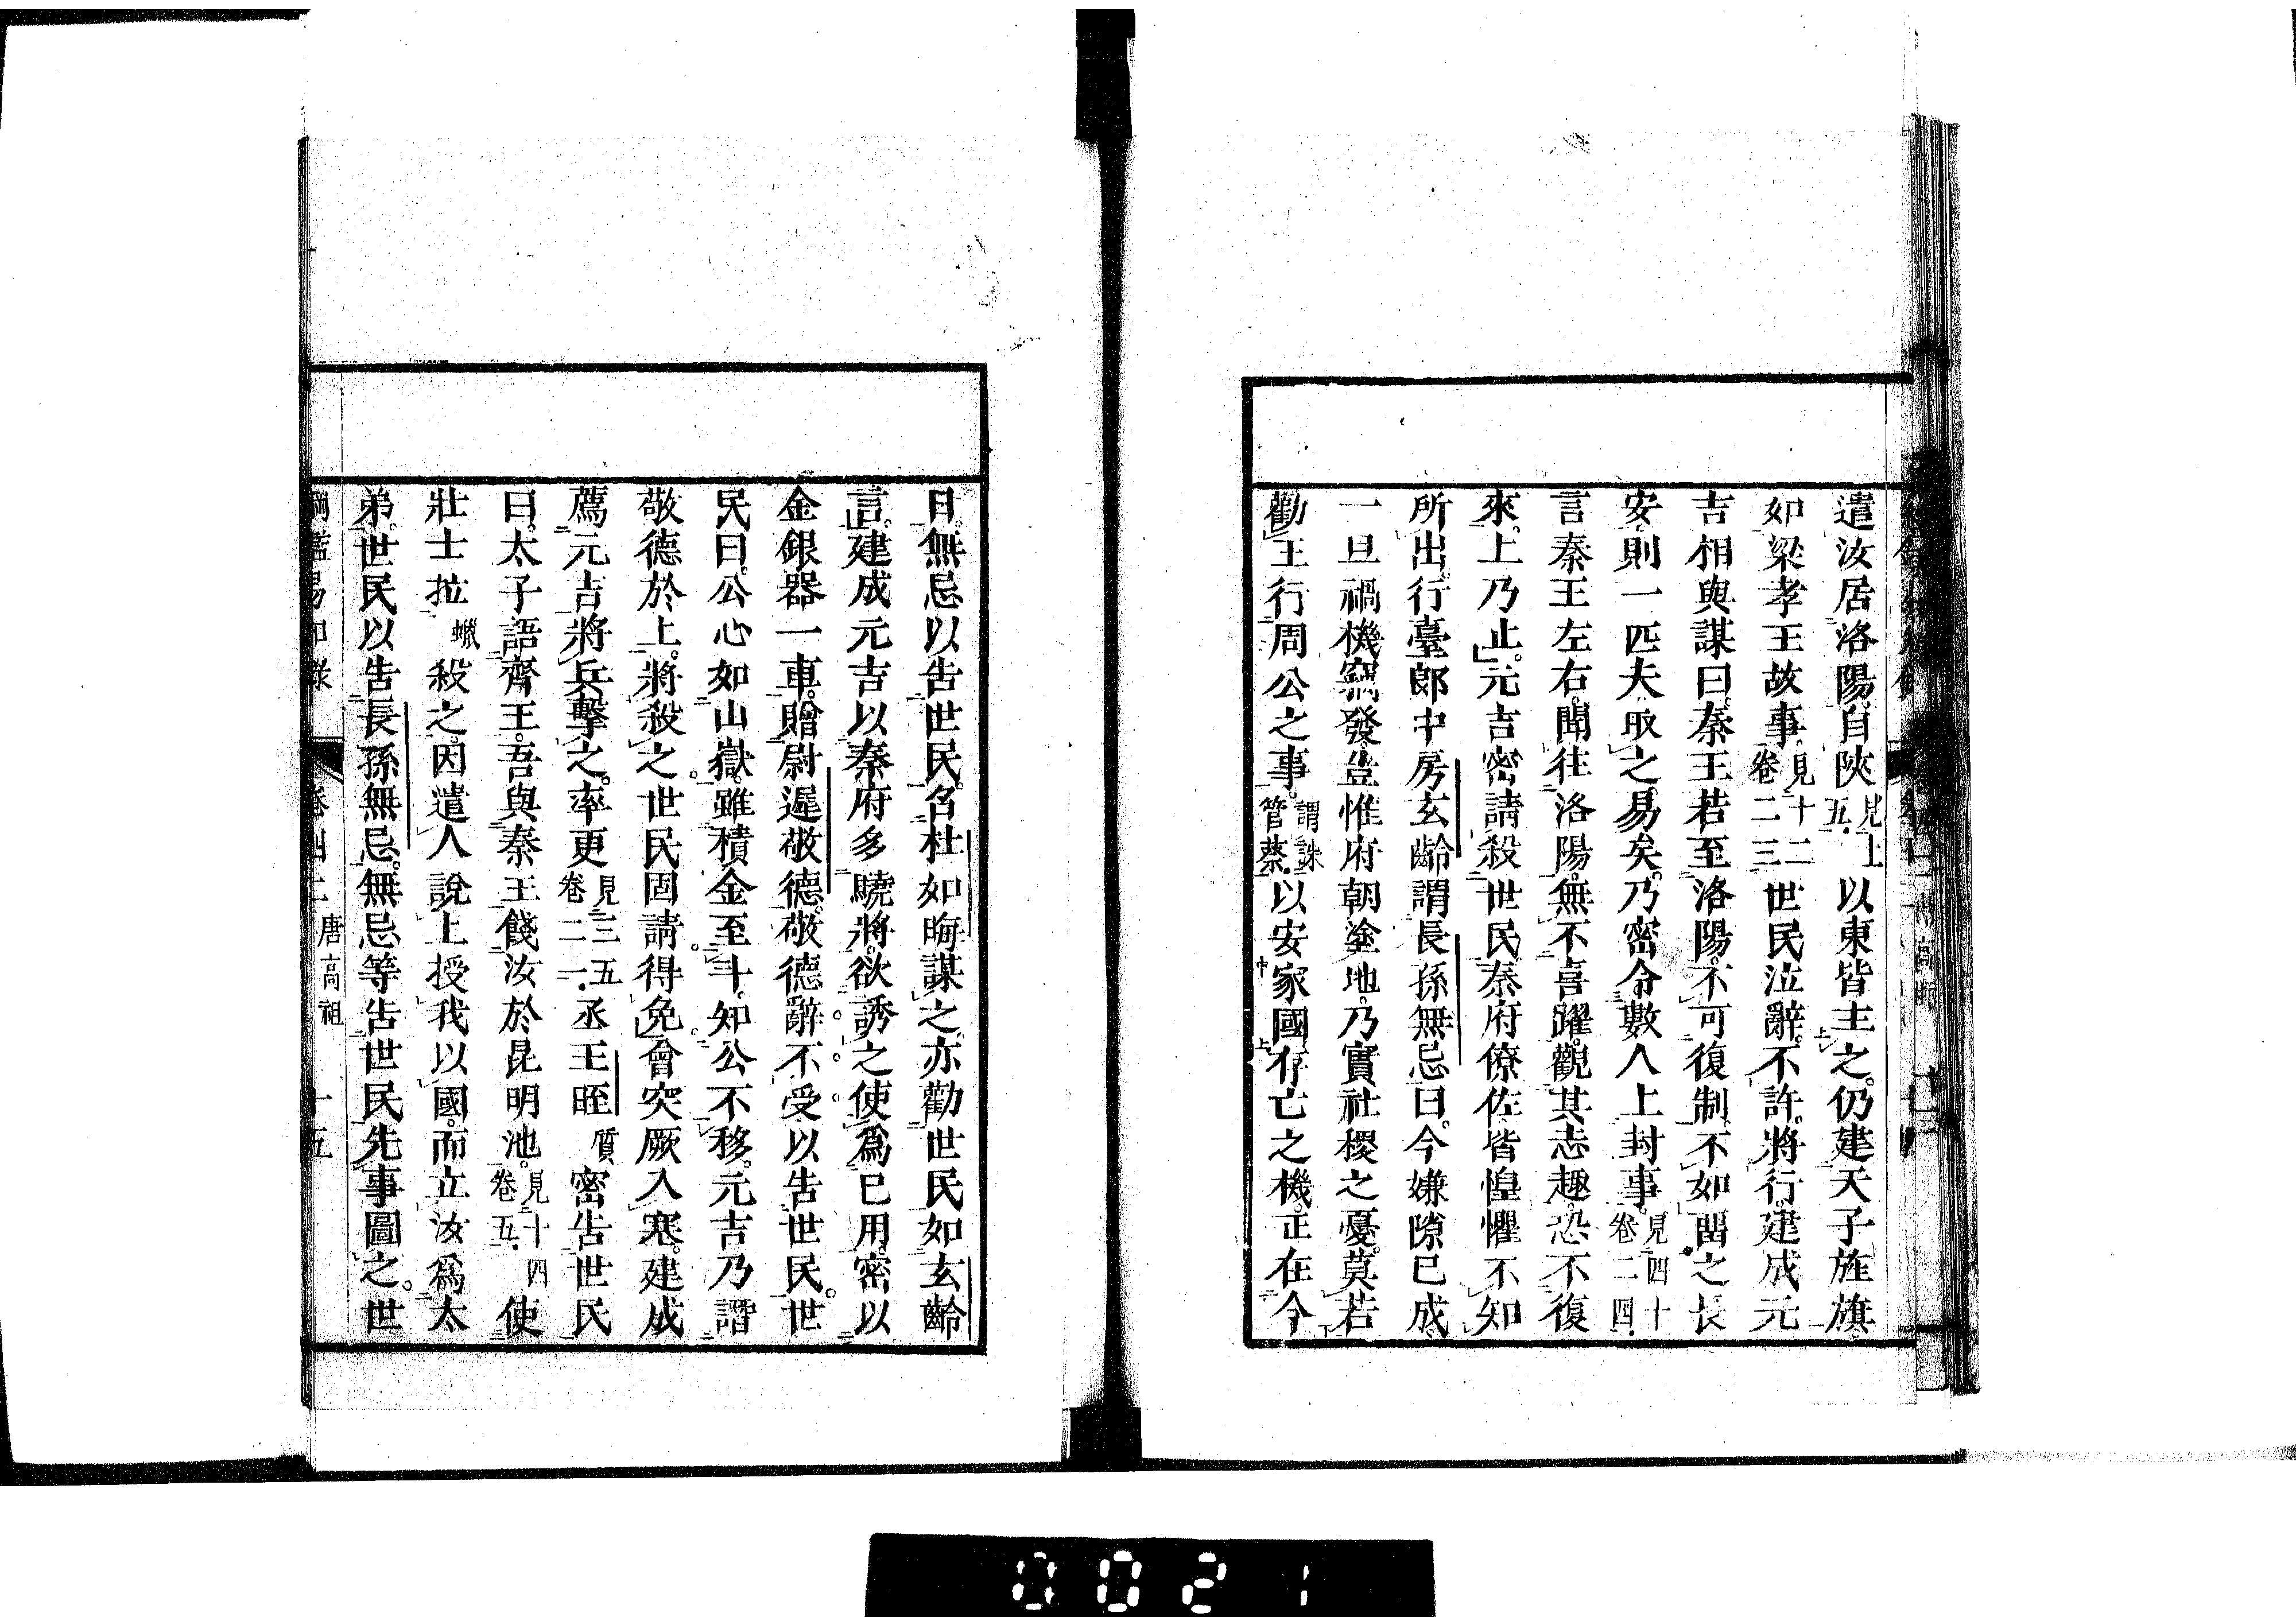 遣汝居洛陽自陝見上五以東皆主之仍建天子旌旗
如梁孝王故事見十二卷二三世民泣辭不許將行建成元
吉相與謀曰秦王若至洛陽不可復制不如留之長
安則一匹夫取之易矣乃密令數人上封事見四十卷二四言
秦王左右聞往洛陽無不喜躍觀其志趣恐不復
來上乃止元吉密請殺世民秦府僚佐皆惶懼不知
所出行臺郎中房玄齡謂長孫無忌曰今嫌隙已成
一旦禍機竊發豈惟府朝塗地乃實社稷之憂莫若
勸王行周公之事謂誅管蔡以安家國存亡之機正在今
日無忌以告世民名杜如晦謀之亦勸世民如玄齡
言建成元吉以秦府多驍將欲誘之使爲已用密以
金銀器一車贈尉遲敬德敬德辭不受以告世民世
民曰公心如山嶽雖積金至斗知公不移元吉乃譖
敬德於上將殺之世民固請得免會突厥入寒建成
薦元吉將兵擊之率更見三五卷二一丞王晊質密告世民
曰太子語齊王吾與秦王餞汝於昆明池見十四卷五使
壯士拉蠟殺之因遣人說上授我以國而立汝爲太
弟世民以告長孫無忌無忌等告世民先事圖之世
綱鑑易知錄 卷四二 唐高祖 十五
0021